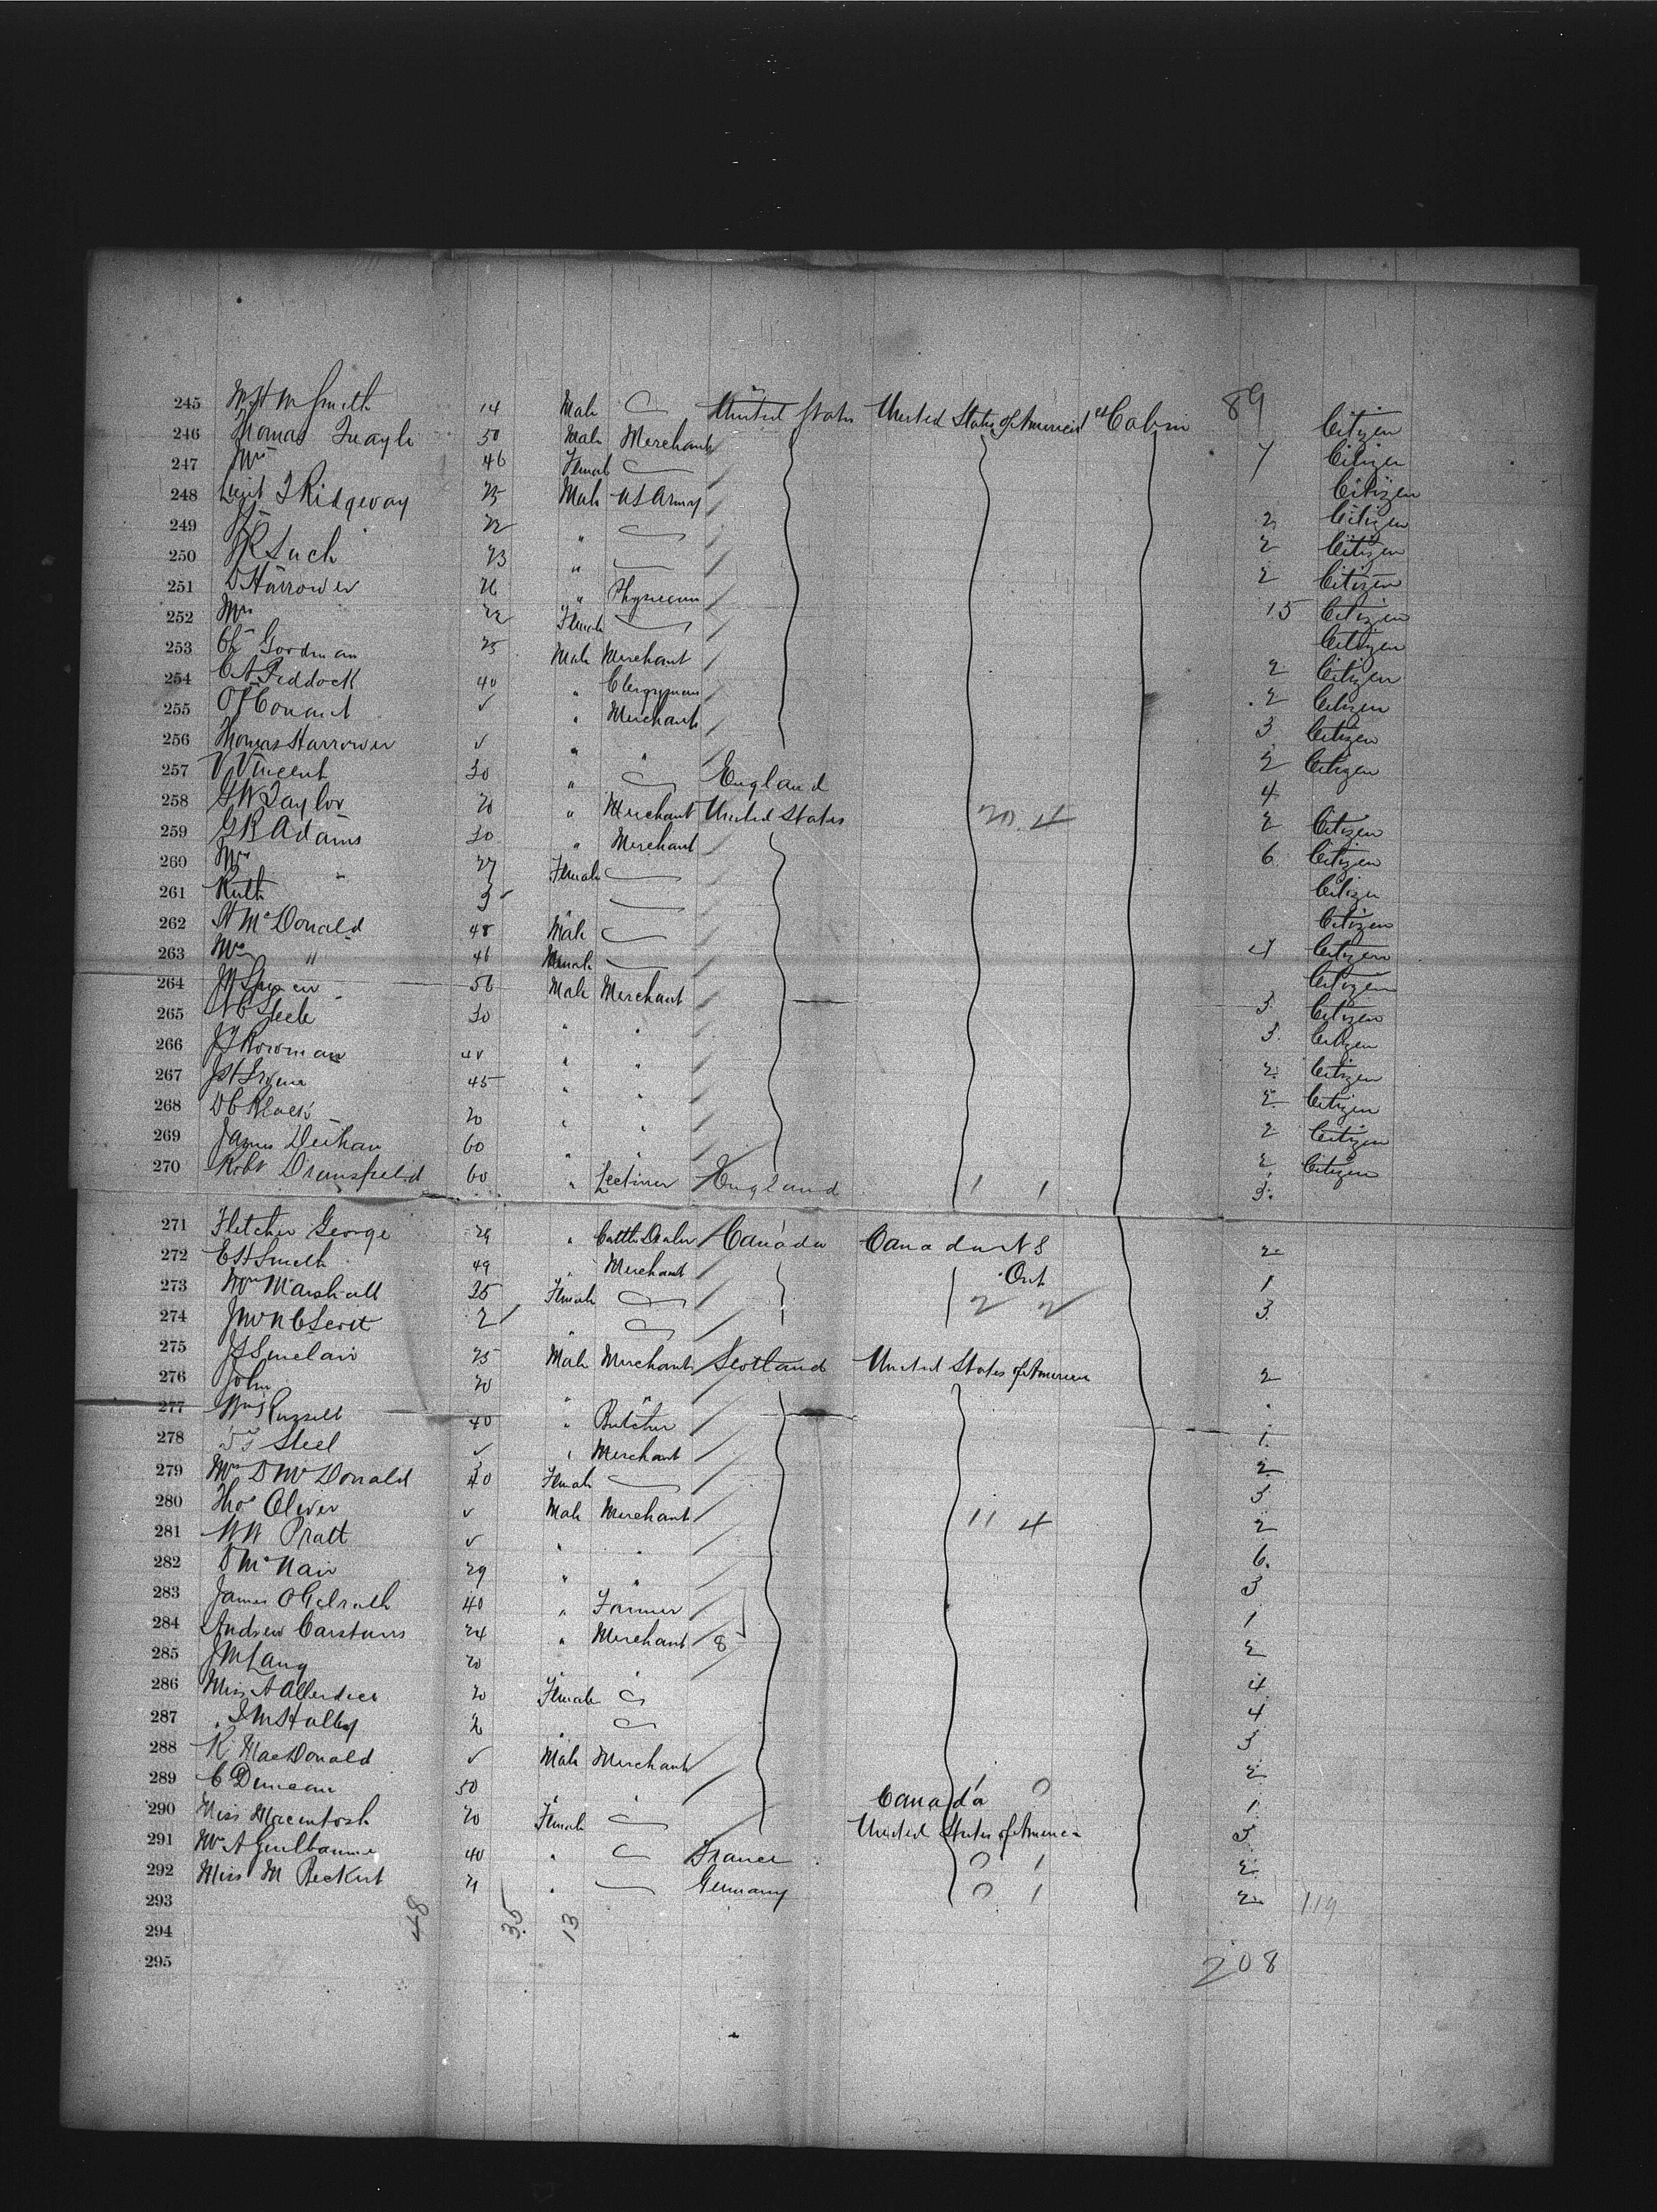 245 M H M Smith 14 Male United States United States of America 1st Cabin 89 Citizen
246 Thomas Quayle 50 Male Merchant 7 Citizen
247 Mrs " 46 Female Citizen
248 Lieut T Ridgeway 25 Male US Army 2 Citizen
249 J " 22 " 2 Citizen
250 J R 23 " 2 Citizen
251 D Harrower 26 " Physician 15 Citizen
252 Mrs " 22 Female Citizen
253 Ch Goodman 25 Male Merchant 2 Citizen
254 C A Piddock 40 " Clergyman 2 Citizen
255 O F Conant ✓ " Merchant 3 Citizen
256 Thomas Harrower ✓ " " 2 Citizen
257 V Vincent 30 " England 4
258 G W Taylor 20 " Merchant United States 20 4 2 Citizen
259 G R Adams 30 " Merchant 6 Citizen
260 Mrs " 27 Female Citizen
261 Ruth " 3 " Citizen
262 H McDonald 48 Male 4 Citizen
263 Mrs " 46 Female Citizen
264 56 Male Merchant 3 Citizen
265 30 " " 3 Citizen
266 " " 2 Citizen
267 45 " " 2 Citizen
268 D C Black 20 " " 2 Citizen
269 James 60 " " 2 Citizen
270 Robt Dransfield 60 " England 1 1 3
271 Fletcher George 29 " Cattle Dealer Canada Canada N S 2
272 E H Smith 49 " Merchant Ont 1
273 Mrs Marshall 35 Female 2 2 3
274 2 "
275 J S Sinclair 25 Male Merchant Scotland United States of America 2
276 John " 20 " "
277 Wm Russell 40 " Butcher 1
278 Steel ✓ " Merchant 2
279 Mrs D McDonald 40 Female 3
280 Thos Oliver ✓ Male Merchant 11 4 2
281 W W Pratt ✓ " " 6
282 D McNair 29 " " 3
283 James 40 " Farmer 1
284 Andrew Carstairs 24 " Merchant 8 2
285 J M Lang 20 " " 4
286 Miss A Allerdice 20 Female 4
287 " 2 " 3
288 R MacDonald ✓ Male Merchant 2
289 C Duncan 50 " " Canada 1 0 1
290 Miss Macintosh 20 Female United States of America 3
291 Mrs A Guilbaume 40 " France 0 1 2
292 Miss M Beckert 21 " Germany 0 1 2 119
293 48 35 13
294
295 208